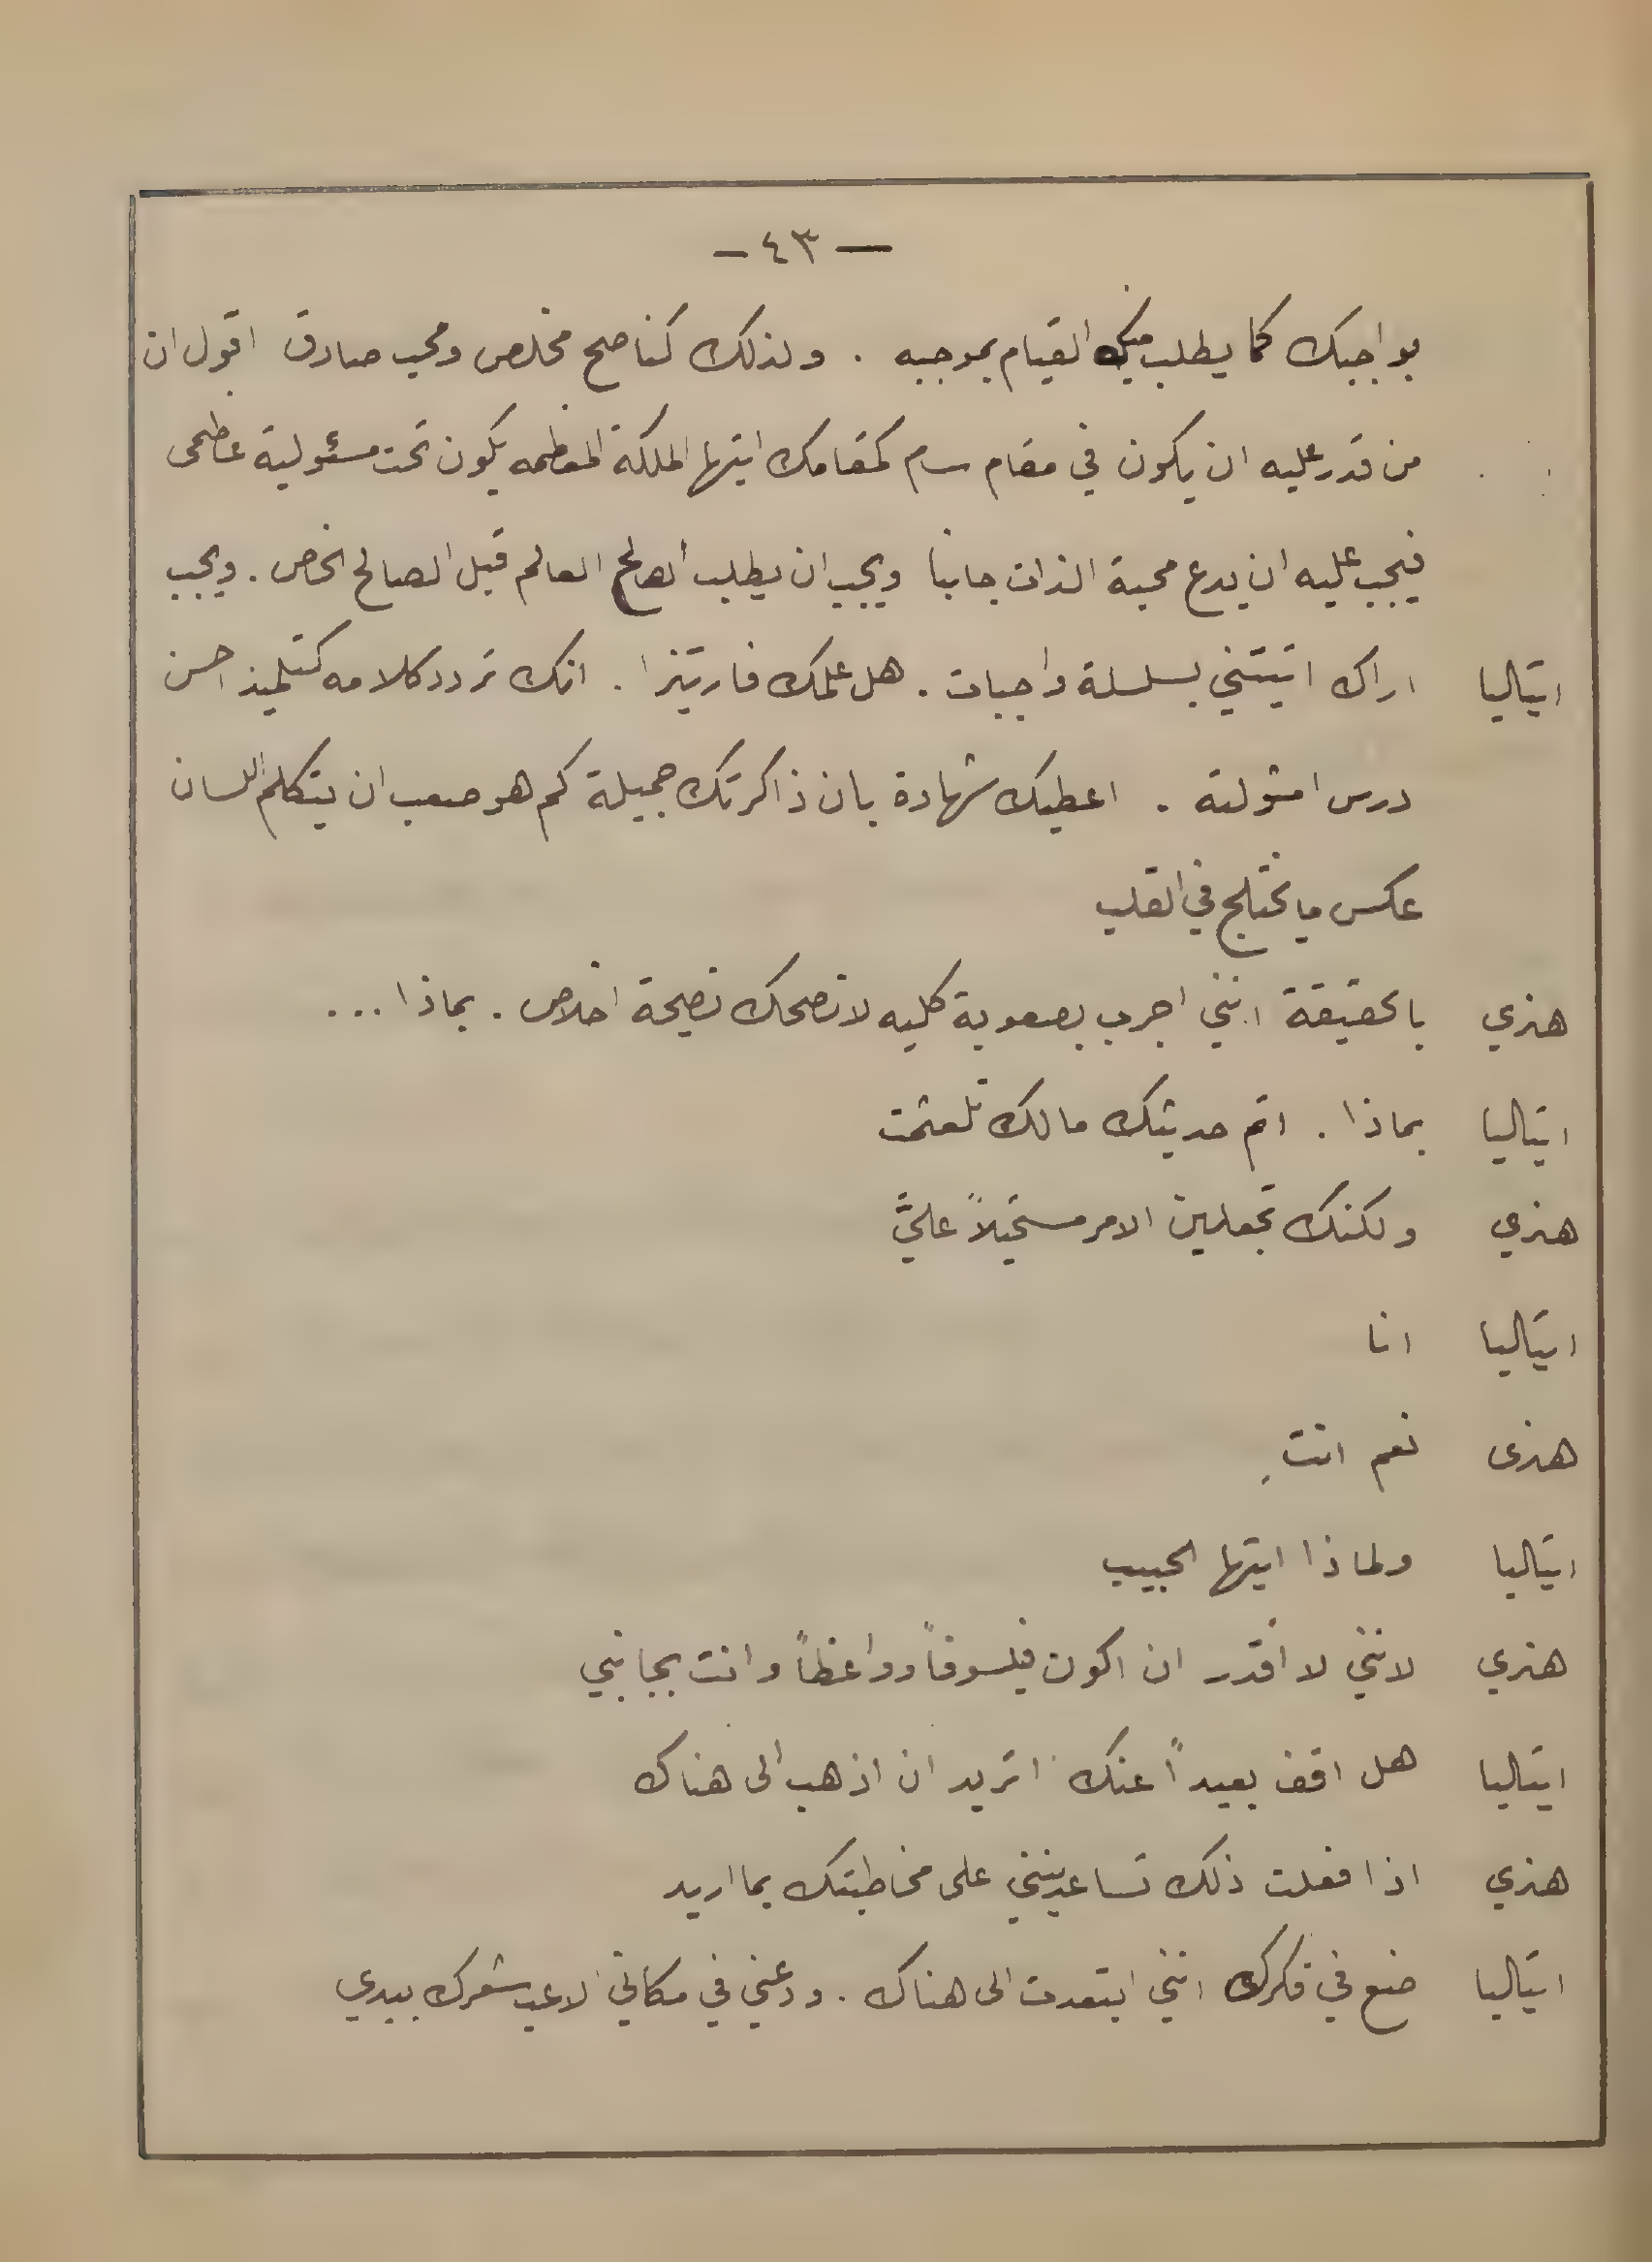 — ٤٣ —
بواجبك كما يطلب منك القيام بموجبه . ولذلك كناصح مخلص ومحب صادق اقول ان
من قدر عليه ان يكون في مقام سام كمقامك ايتها الملكة المعظمه يكون تحت مسئولية عظمى
فيجب عليه ان يدع محبة الذات جانبا ويجب ان يطلب الصالح العالم قبل الصالح الخاص . ويجب
ايتاليا اراك اتيتني بسلسلة واجبات . هل علمك فارتيزا . انك تردد كلامه كتلميذ احسن
درس امثولته . اعطيك شهادة بان ذاكرتك جميلة كم هو صعب ان يتكلم اللسان
عكس ما يختلج في القلب
هنري بالحقيقة انني اجرب بصعوبة كليه لانصحك نصيحة اخلاص . بماذا ...
ايتاليا بماذا . اتم حديثك مالك تلعثمت
هنري ولكنك تجعلين الامر مستحيلاً عليَّ
ايتاليا انا
هنرى نعم انتِ
ايتاليا ولماذا ايتها الحبيب
هنري لانني لا أقدر ان اكون فيلسوفاً وواعظاً وانت بجانبي
ايتاليا هل اقف بعيداً عنك اتريد ان اذهب الى هناك
هنري اذا فعلت ذلك تساعدينني على مخاطبتك بما اريد
ايتاليا ضع في فكرك انني ابتعدت الى هناك . ودعني في مكاني الاعب شعرك بيدي